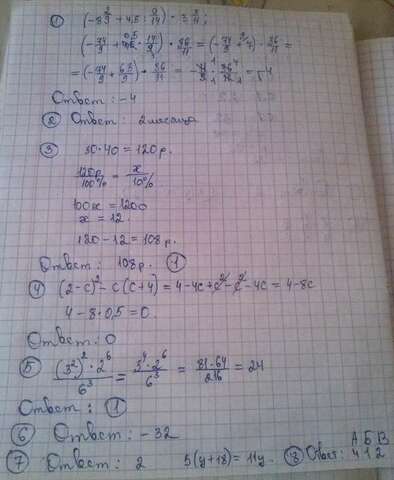 ① (-8 2/9 + 4,5 : 9/14) · 3 3/11;
(-74/9 + 4,5 · 14/9) · 36/11 = (-74/9 + 7) · 36/11 =
= (-74/9 + 63/9) · 36/11 = -11/9 · 36/11 = -4
Ответ: -4
② Ответ: 2 месяца
③ 30·40 = 120р.
120р/100% = x/10%
100x = 1200
x = 12.
120 - 12 = 108 р.
Ответ: 108р. ①
④ (2-c)² - c(c+4) = 4-4c+c²-c²-4c = 4-8c
4 - 8·0,5 = 0.
Ответ: 0
⑤ (3²)²·2⁶/6³ = 3⁴·2⁶/6³ = 81·64/216 = 24
Ответ: ①
⑥ Ответ: -32
А Б В
⑦ Ответ: 2 5(y+18) = 11y. ⑧ Ответ: 4 1 2